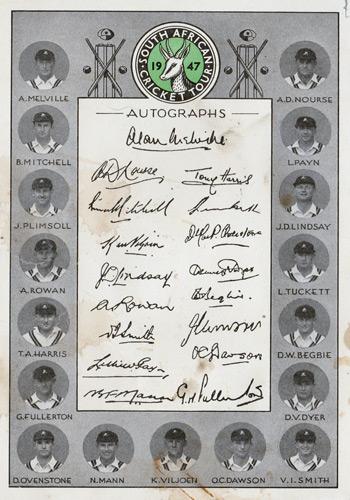 SOUTH AFRICAN
1947
CRICKET TOUR
A.MELVILLE
A.D.NOURSE
AUTOGRAPHS
Alan Melville
B.MITCHELL
L.PAYN
A D Nourse
Tony Harris
Bruce Mitchell
J.PLIMSOLL
J.D.LINDSAY
Ken Viljoen
J D Lindsay
Dennis Dyer
A.ROWAN
L.TUCKETT
A Rowan
D Begbie
V I Smith
T.A.HARRIS
D.W.BEGBIE
O C Dawson
Leslie Payn
N B F Mann
G M Fullerton
G.FULLERTON
D.V.DYER
D.OVENSTONE
N.MANN
K.VILJOEN
O.C.DAWSON
V.I.SMITH